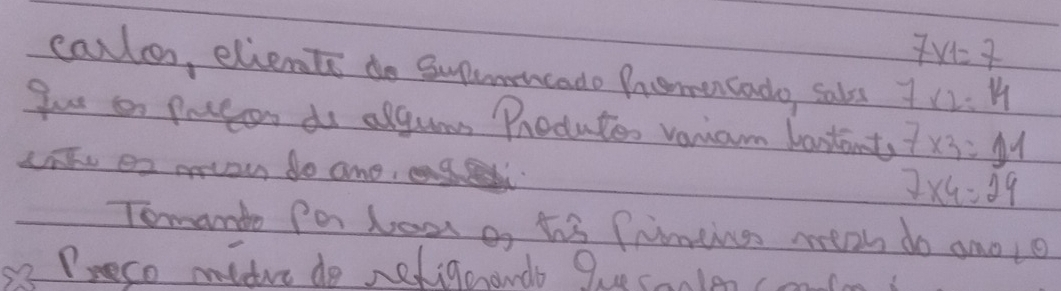 Carlos, cliente do Supermercado Promercado, sabe 7x1=7
que os preços de alguns Produtos variam bastante 7x2=14
entre os meses do ano. 7x3=21
7x4=29
Tomando Por base os três Primeiros meses do ano, o
Preço médio do refrigerando que Carlos